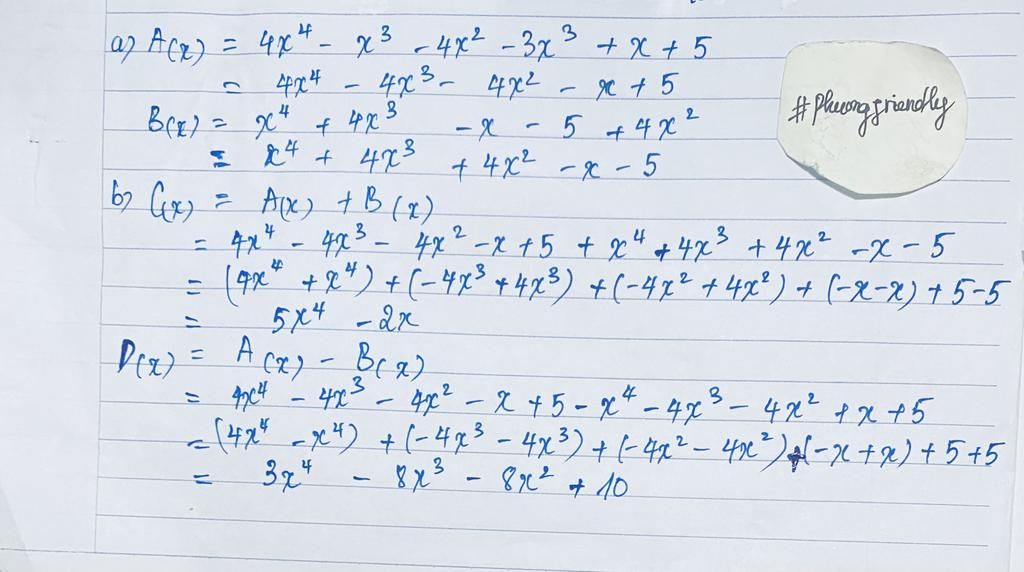 a) A(x) = 4x⁴ - x³ - 4x² - 3x³ + x + 5
= 4x⁴ - 4x³ - 4x² - x + 5
B(x) = x⁴ + 4x³ - x - 5 + 4x²
= x⁴ + 4x³ + 4x² - x - 5
b) C(x) = A(x) + B(x)
= 4x⁴ - 4x³ - 4x² - x + 5 + x⁴ + 4x³ + 4x² - x - 5
= (4x⁴ + x⁴) + (-4x³ + 4x³) + (-4x² + 4x²) + (-x-x) + 5-5
= 5x⁴ - 2x
D(x) = A(x) - B(x)
= 4x⁴ - 4x³ - 4x² - x + 5 - x⁴ - 4x³ - 4x² + x + 5
= (4x⁴ - x⁴) + (-4x³ - 4x³) + (-4x² - 4x²) + (-x + x) + 5 + 5
= 3x⁴ - 8x³ - 8x² + 10
#Phuongfriendly